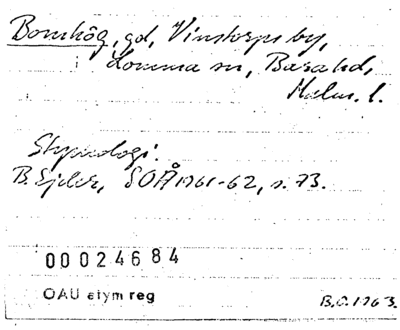 Bomhög, gd, Vinstorps by,
Lomma sn, Bara hd,
Malm. l.
Etymologi:
B. Ejder, SOÅ 1961-62, s. 73.
00024684
OAU etym reg
B.O. 1963.